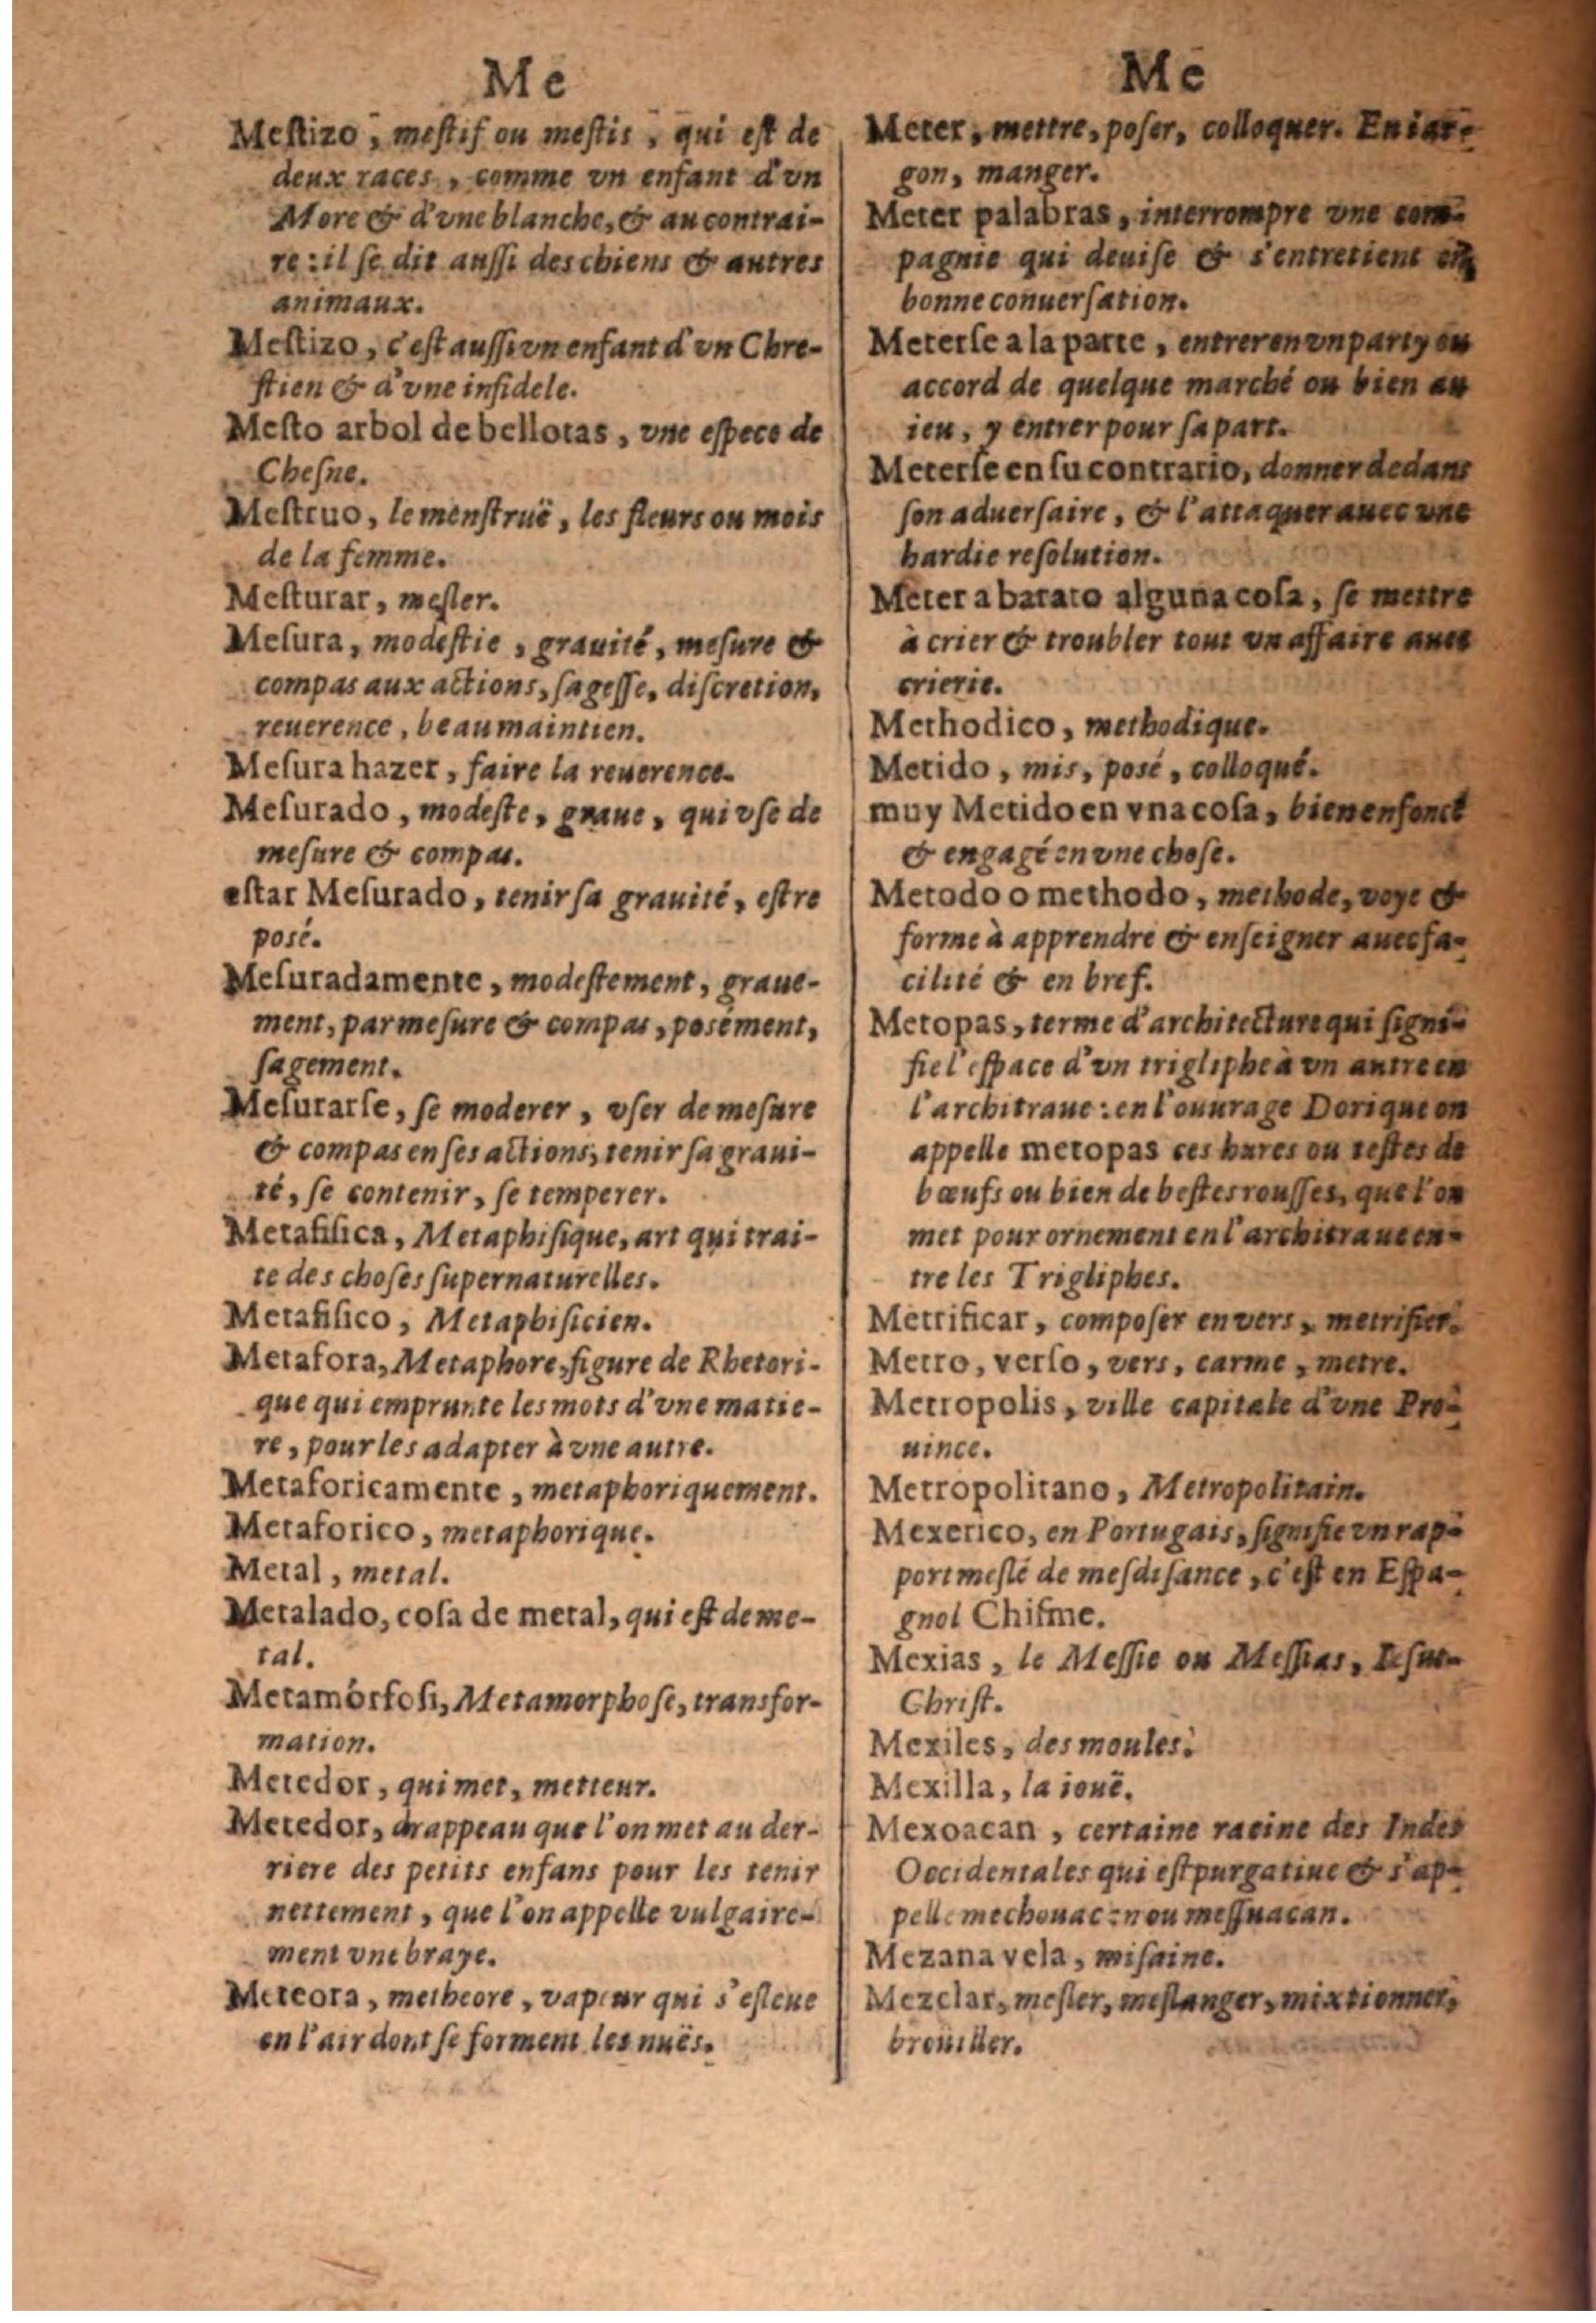 Me
Meſtizo, meſtif ou meſtis, qui eſt de
deux races, comme vn enfant d'vn
More & d'vne blanche, & au contrai-
re : il ſe dit auſſi des chiens & autres
animaux.
Meſtizo, c'eſt auſſi vn enfant d'vn Chre-
ſtien & d'vne infidele.
Meſto arbol de bellotas, vne eſpece de
Cheſne.
Meſtruo, le menſtruë, les fleurs ou mois
de la femme.
Meſturar, meſler.
Meſura, modeſtie, grauité, meſure &
compas aux actions, ſageſſe, diſcretion,
reuerence, beau maintien.
Meſura hazer, faire la reuerence.
Meſurado, modeſte, graue, qui vſe de
meſure & compas.
eſtar Meſurado, tenir ſa grauité, eſtre
posé.
Meſuradamente, modeſtement, graue-
ment, par meſure & compas, posément,
ſagement.
Meſurarſe, ſe moderer, vſer de meſure
& compas en ſes actions, tenir ſa graui-
té, ſe contenir, ſe temperer.
Metafiſica, Metaphiſique, art qui trai-
te des choſes ſupernaturelles.
Metafiſico, Metaphiſicien.
Metafora, Metaphore, figure de Rhetori-
que qui emprunte les mots d'vne matie-
re, pour les adapter à vne autre.
Metaforicamente, metaphoriquement.
Metaforico, metaphorique.
Metal, metal.
Metalado, coſa de metal, qui eſt de me-
tal.
Metamórfoſi, Metamorphoſe, transfor-
mation.
Metedor, qui met, metteur.
Metedor, drappeau que l'on met au der-
riere des petits enfans pour les tenir
nettement, que l'on appelle vulgaire-
ment vne braye.
Meteora, metheore, vapeur qui s'eſleue
en l'air dont ſe forment les nuës.
Me
Meter, mettre, poſer, colloquer. En iar-
gon, manger.
Meter palabras, interrompre vne com-
pagnie qui deuiſe & s'entretient en
bonne conuerſation.
Meterſe a la parte, entrer en vn party ou
accord de quelque marché ou bien au
ieu, y entrer pour ſa part.
Meterſe en ſu contrario, donner dedans
ſon aduerſaire, & l'attaquer auec vne
hardie reſolution.
Meter a barato alguna coſa, ſe mettre
à crier & troubler tout vn affaire auec
crierie.
Methodico, methodique.
Metido, mis, posé, colloqué.
muy Metido en vna coſa, bien enfoncé
& engagé en vne choſe.
Metodo o methodo, methode, voye &
forme à apprendre & enſeigner auec fa-
cilité & en bref.
Metopas, terme d'architecture qui ſigni-
fie l'eſpace d'vn trigliphe à vn autre en
l'architraue : en l'ouurage Dorique on
appelle metopas ces hures ou teſtes de
bœufs ou bien de beſtes rouſſes, que l'on
met pour ornement en l'architraue en-
tre les Trigliphes.
Metrificar, compoſer en vers, metrifier.
Metro, verſo, vers, carme, metre.
Metropolis, ville capitale d'vne Pro-
uince.
Metropolitano, Metropolitain.
Mexerico, en Portugais, ſignifie vn rap-
port meſlé de meſdiſance, c'eſt en Eſpa-
gnol Chiſme.
Mexias, le Meſſie ou Meſſias, Ieſus-
Chriſt.
Mexiles, des moules.
Mexilla, la iouë.
Mexoacan, certaine racine des Indes
Occidentales qui eſt purgatiue & s'ap-
pelle mechouacan ou meſſuacan.
Mezana vela, miſaine.
Mezclar, meſler, meſlanger, mixtionner,
broüiller.